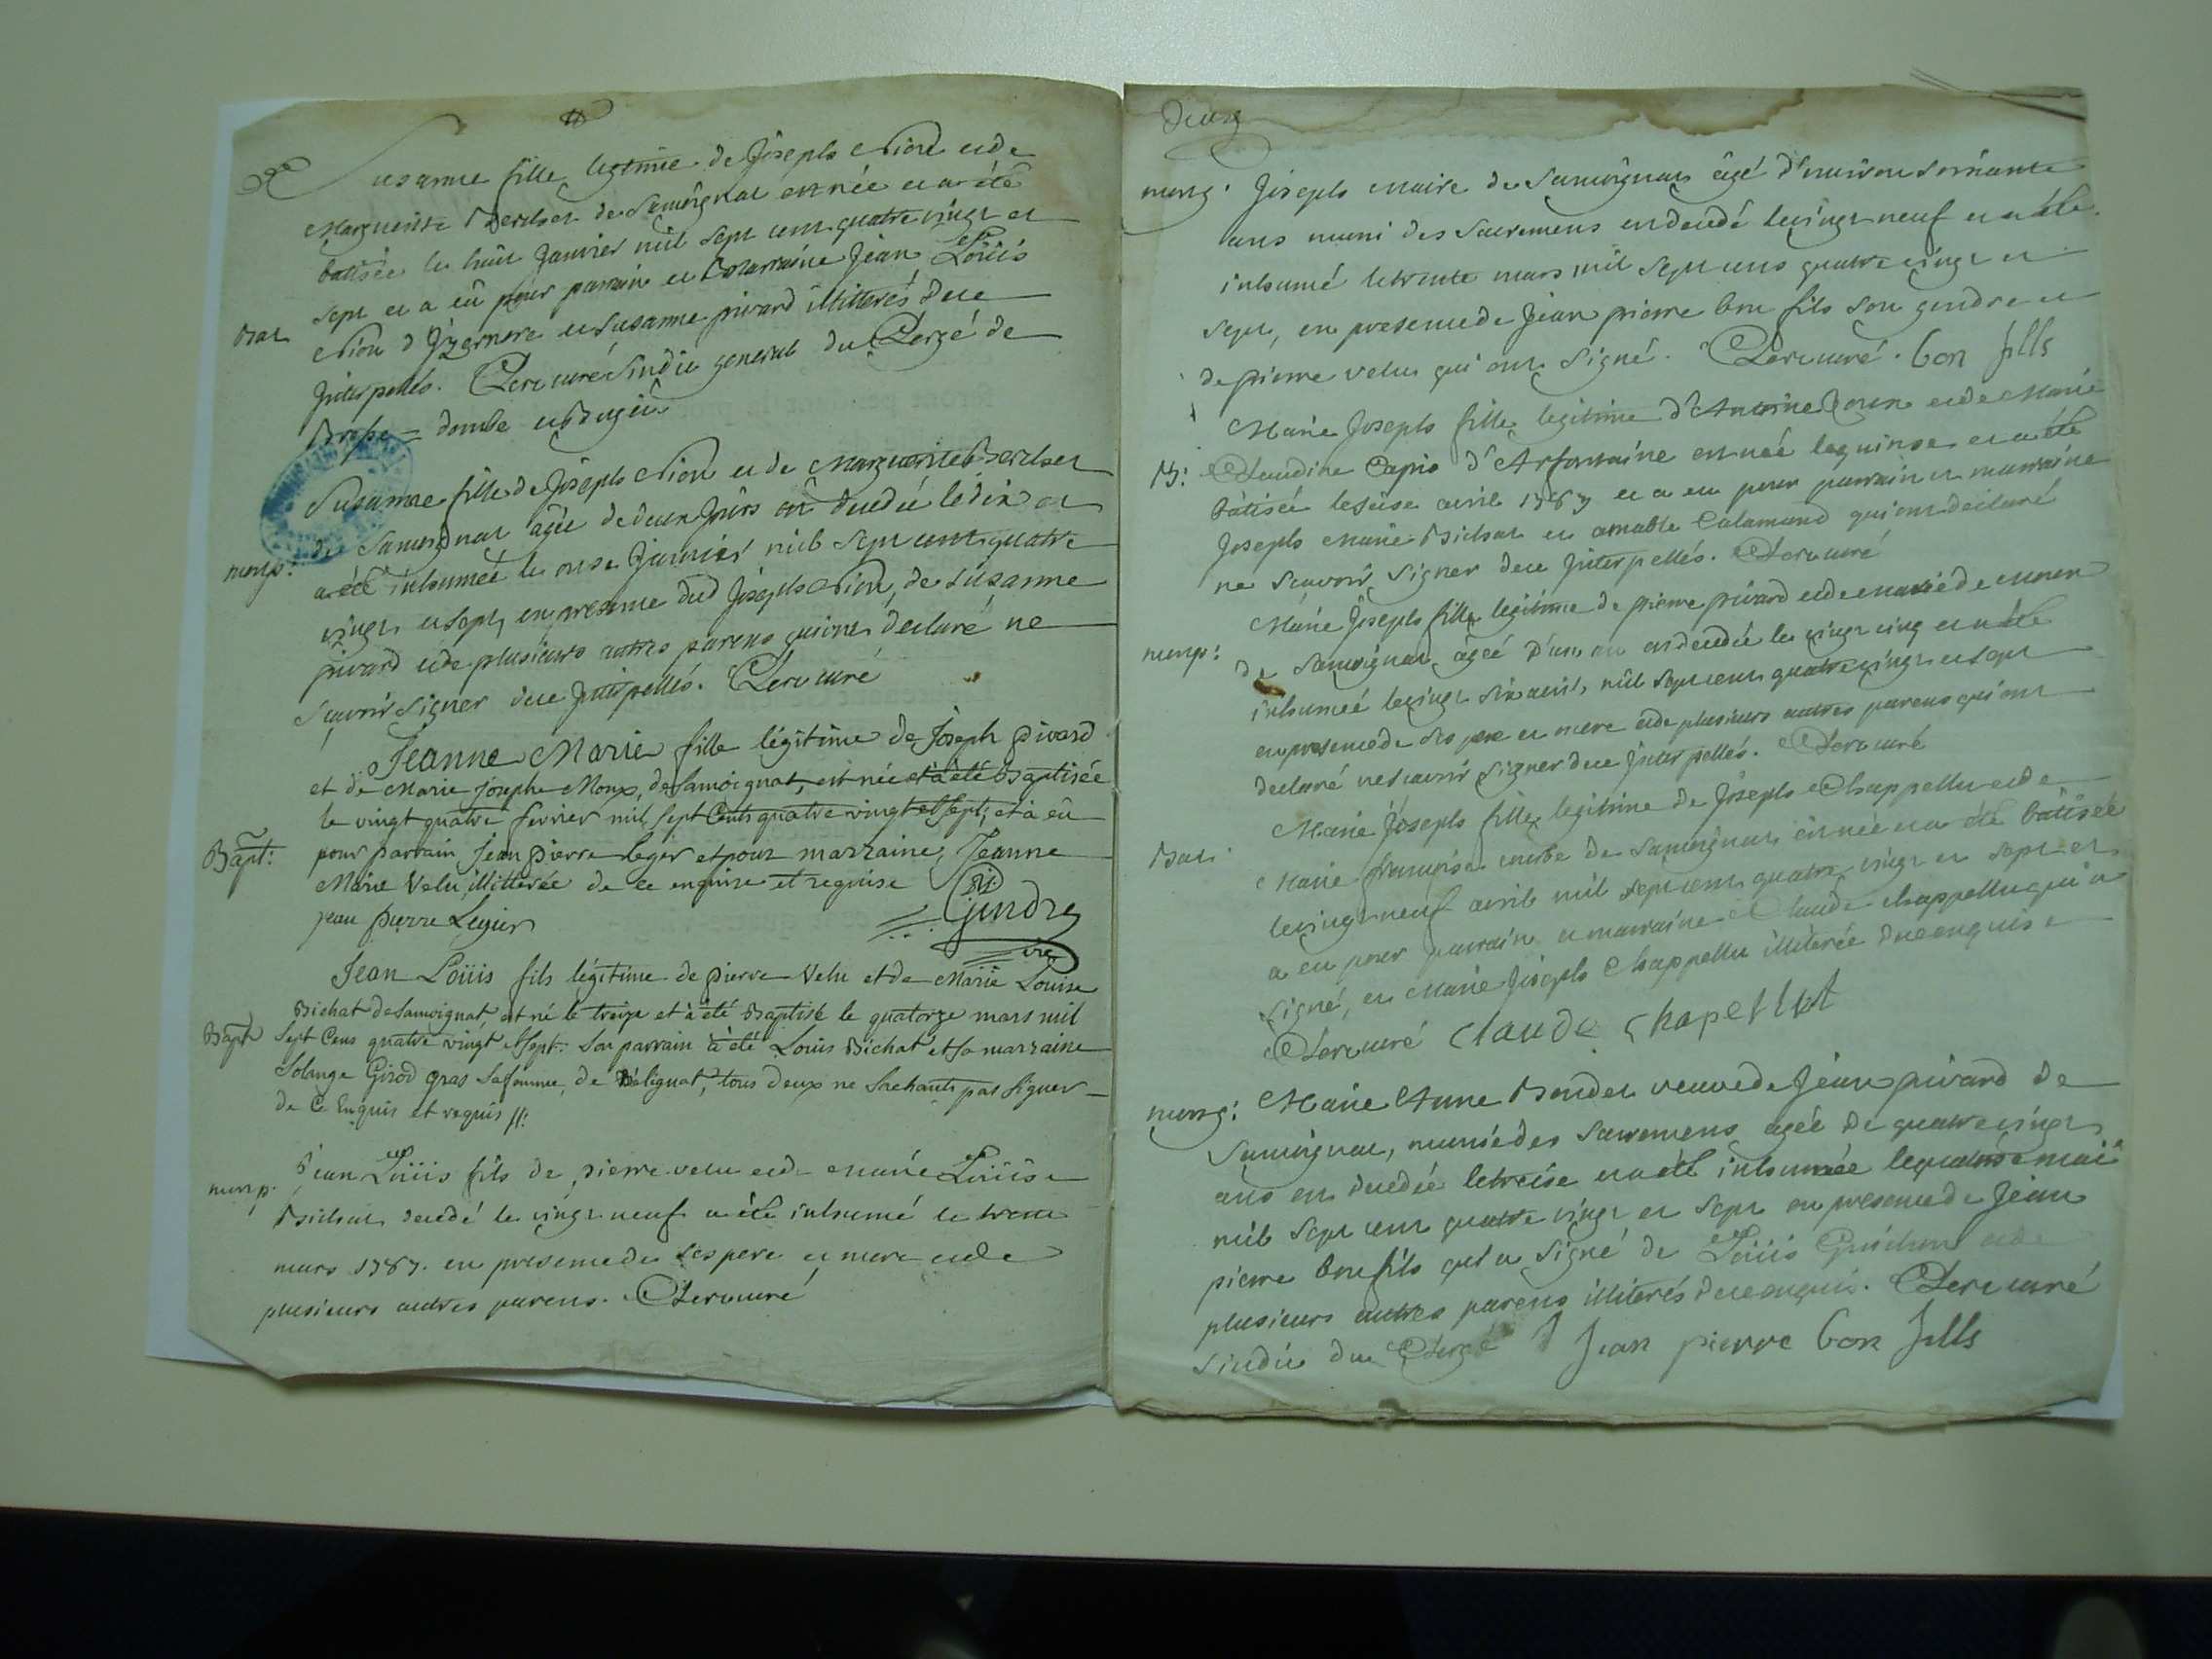 Susanne fille legitime de Joseph Nion et de
Marguerite Berchet de Samoignat est née et a été
batisée le huit Janvier mil sept cent quatre vingt et
sept et a eû pour parrain et marraine Jean Loüis
Bat
Nion d'Izernore et Susanne pivard illitterés de ce
Interpellés. curé Sindic general du Clergé de
Bresse = dombe et Bugeii
Susanne fille de Joseph Nion et de Marguerite Berchet
de Samoignat agée de deux Jours est decedée le dix et
mort:
a été inhumée le onze Janvier mil sept cent quatre
vingt et sept, en presence dud Joseph Nion, de Susanne
pivard et de plusieurs autres parens qui ont déclaré ne
scavoir signer de ce Interpellés. curé
Jeanne Marie fille légitime de Joseph pivard
et de Marie josephe Monx, de Samoignat, est née et à été Baptisée
le vingt quatre fevrier mil sept Cents quatre vingt et sept, et à eû
Bapt:
pour parrain Jean pierre leger et pour marraine, Jeanne
Marie Velu, illitterée de ce enquise et requise
jean pierre Legier
Gindre
vic
Jean Loüis fils légitime de pierre Velu et de Marie Louise
Bichat de Samoignat, est né le treize et à été Baptisé le quatorze mars mil
Bapt
Sept Cens quatre vingt et sept: son parrain à été Louis Bichat et sa marraine
Solange Girod gras sa femme, de Bélignat, tous deux ne sachants pas signer
de Ce Enquis et requis //:
Jean Loüis fils de pierre velu et de Marie Loüise
mort
Bichat decedé le vingt neuf a été inhumé le trente
mars 1787. en presence de ses pere et mere et de
plusieurs autres parens. curé
Deux
mort: Joseph Maire de Samoignat âgé d'environ soixante
ans muni des Sacremens est decedé le vingt neuf et a été
inhumé le trente mars mil sept cens quatre vingt et
sept, en presence de Jean pierre bon fils son gendre et
de pierre velu qui ont signé. curé. bon fills
Marie Joseph fille legitime d'Antoine et de Marie
B: Claudine Capio d'Arfontaine est née le quinze et a été
bâtisée le seise avril 1787 et a eu pour parrain et marraine
Joseph Marie Bichat et amable Calamand qui ont declaré
ne scavoir signer de ce Interpellés. curé
Marie Joseph fille legitime de pierre pivard et de marie
mort:
de Samoignat, agée d'un an est decedée le vingt cinq et a été
inhumée le vingt six avril, mil sept cent quatre vingt et sept
en presence de ses pere et mere et de plusieurs autres parens qui ont
declaré ne scavoir signer de ce Interpellés. curé
Marie Joseph fille legitime de Joseph Chappellu et de
Bat:
Marie françoise de Samoignat est née et a été bâtisée
le vingt neuf avril mil sept cent quatre vingt et sept et
a eu pour parrain et marraine Claude chappellu qui a
signé, et Marie Joseph Chappellu illiterée de ce enquise
curé Claude chapellut
mort: Marie Anne Bondet veuve de Jean pivard de
Samoignat, munie des Sacremens agée de quatre vingt
ans est decedée le treise et a été inhumée le quatorse mai
mil sept cent quatre vingt et sept en presence de Jean
pierre bonfils qui a signé de Loüis et de
plusieurs autres parens illiterés de ce enquis. curé
sindic du Clergé Jean pierre bon fills